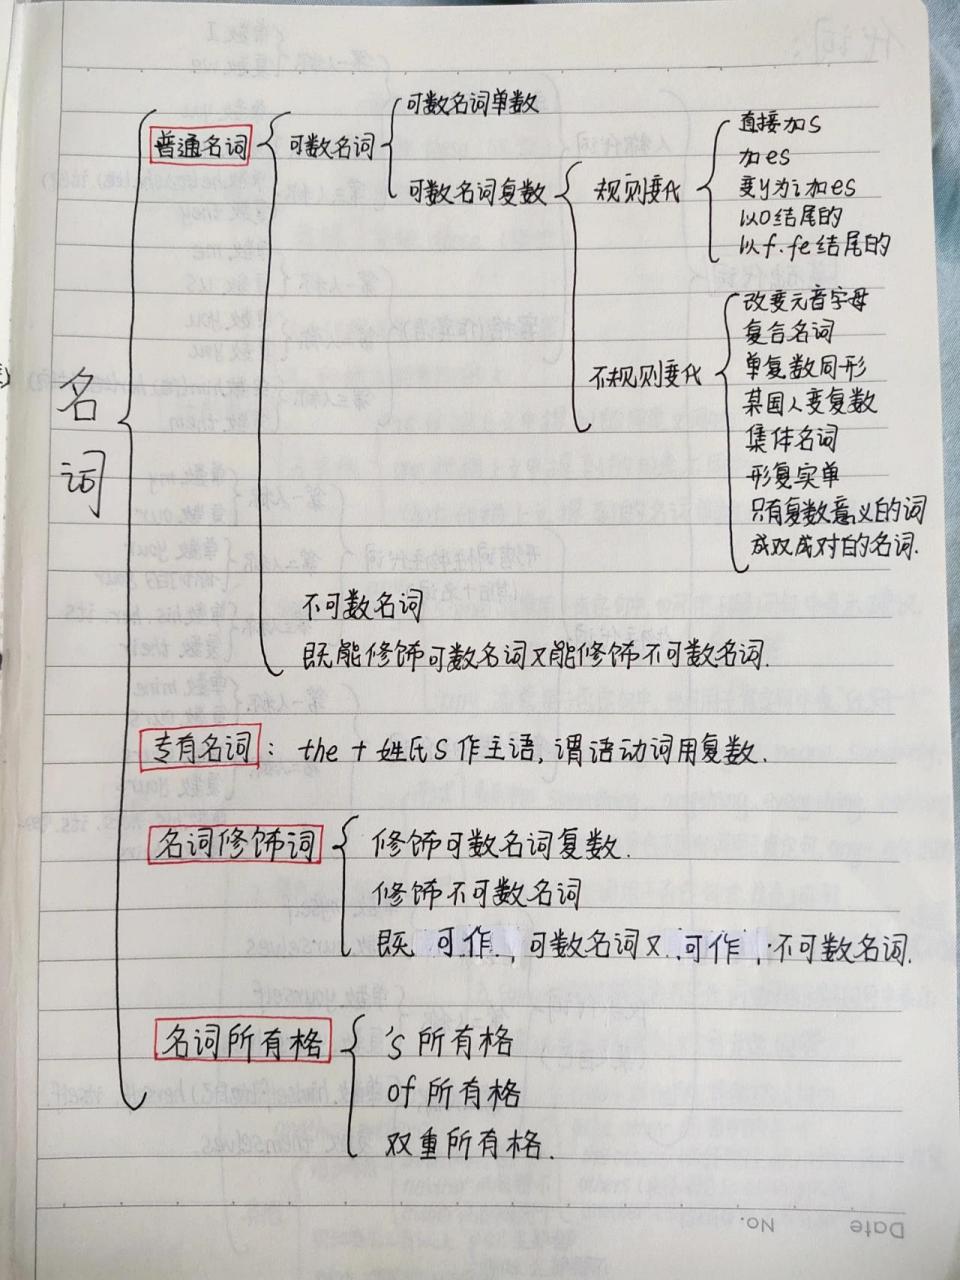 名词
普通名词
可数名词
可数名词单数
可数名词复数
规则变化
直接加s
加es
变y为i加es
以o结尾的
以f.fe结尾的
不规则变化
改变元音字母
复合名词
单复数同形
某国人变复数
集体名词
形复实单
只有复数意义的词
成双成对的名词.
不可数名词
既能修饰可数名词又能修饰不可数名词.
专有名词: the + 姓氏s 作主语,谓语动词用复数.
名词修饰词
修饰可数名词复数.
修饰不可数名词
既可作,可数名词又可作,不可数名词.
名词所有格
's 所有格
of 所有格
双重所有格.
Date No.